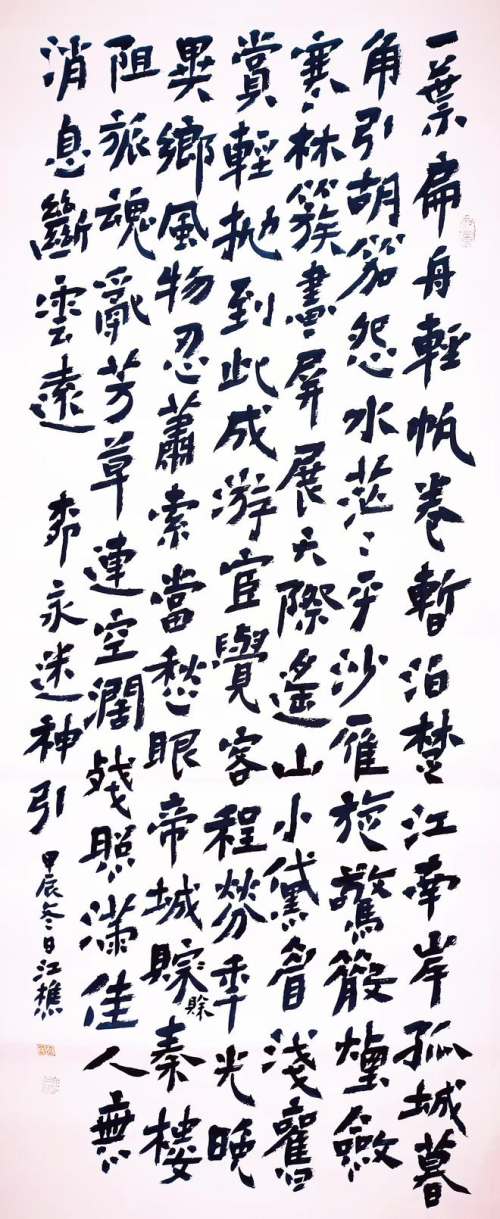 一葉扁舟輕帆卷暫泊楚江南岸孤城暮
角引胡笳怨水茫〻平沙雁旋驚散煙斂
寒林簇畫屏展天際遙山小黛眉淺舊
賞輕拋到此成游宦覺客程勞年光晚
異鄉風物忍蕭索當愁眼帝城賒賒秦樓
阻旅魂亂芳草連空闊殘照滿佳人無
消息斷雲遠 柳永迷神引 甲辰冬日江樵